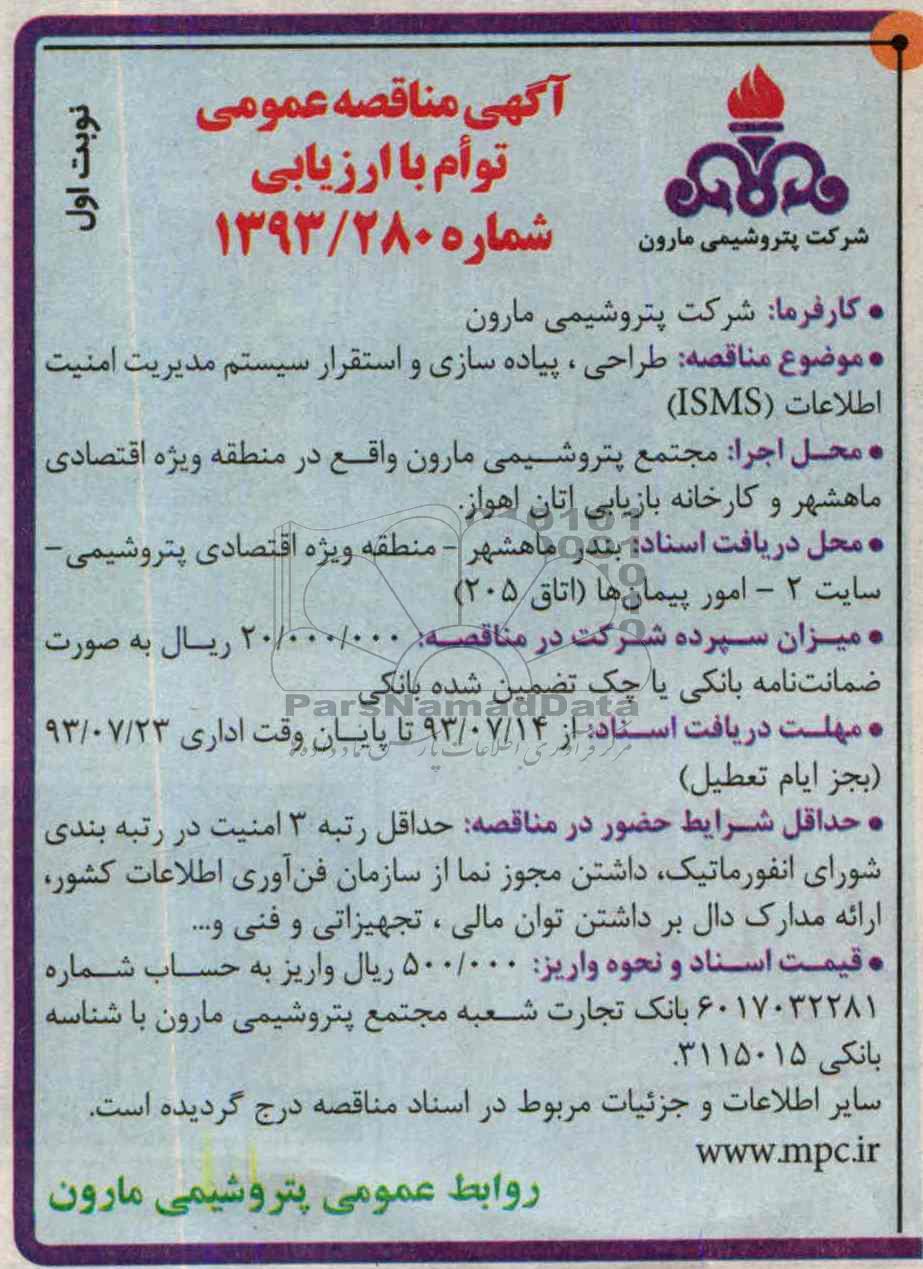 نوبت اول
آگهی مناقصه عمومی
توأم با ارزیابی
شماره ۱۳۹۳/۲۸۰
شرکت پتروشیمی مارون
• کارفرما: شرکت پتروشیمی مارون
• موضوع مناقصه: طراحی ، پیاده سازی و استقرار سیستم مدیریت امنیت
اطلاعات (ISMS)
• محـل اجرا: مجتمع پتروشـیمی مارون واقـع در منطقه ویژه اقتصادی
ماهشهر و کارخانه بازیابی اتان اهواز.
• محل دریافت اسناد: بندر ماهشهر - منطقه ویژه اقتصادی پتروشیمی -
سایت ۲ - امور پیمان‌ها (اتاق ۲۰۵)
• میـزان سـپرده شـرکت در مناقصـه: ۲۰/۰۰۰/۰۰۰ ریـال به صورت
ضمانت‌نامه بانکی یا چک تضمین شده بانکی
ParsNamadData
• مهلـت دریافت اسـناد: از ۹۳/۰۷/۱۴ تا پایـان وقت اداری ۹۳/۰۷/۲۳
(بجز ایام تعطیل)
• حداقل شـرایط حضور در مناقصه: حداقل رتبه ۳ امنیت در رتبه بندی
شورای انفورماتیک، داشتن مجوز نما از سازمان فن‌آوری اطلاعات کشور،
ارائه مدارک دال بر داشتن توان مالی ، تجهیزاتی و فنی و...
• قیمـت اسـناد و نحوه واریز: ۵۰۰/۰۰۰ ریال واریز به حسـاب شـماره
۶۰۱۷۰۳۲۲۸۱ بانک تجارت شـعبه مجتمع پتروشیمی مارون با شناسه
بانکی ۳۱۱۵۰۱۵.
سایر اطلاعات و جزئیات مربوط در اسناد مناقصه درج گردیده است.
www.mpc.ir
روابط عمومی پتروشیمی مارون